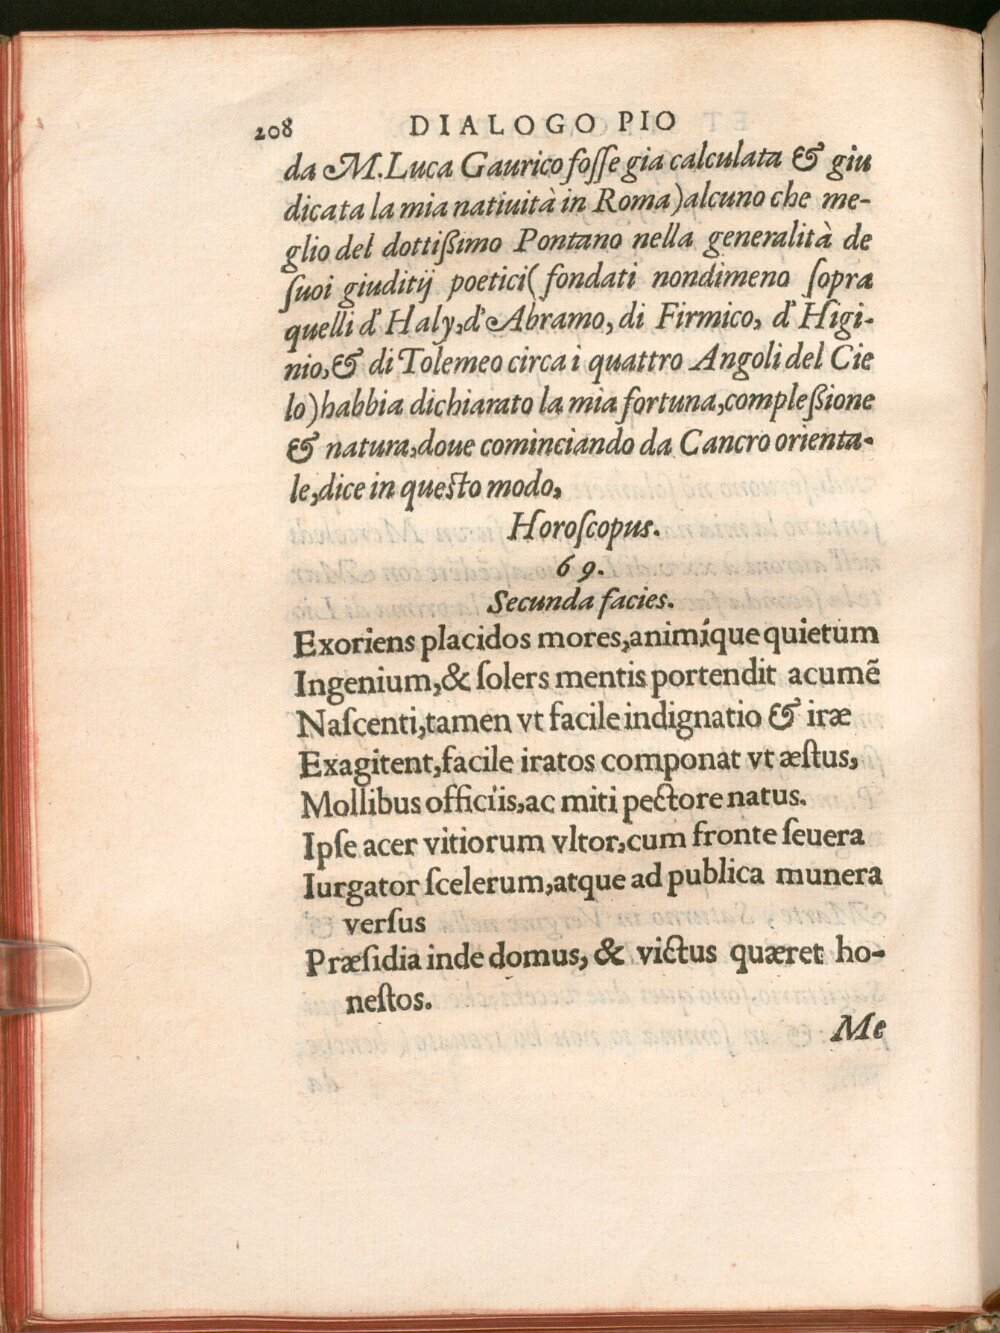 208 DIALOGO PIO
da M. Luca Gaurico fosse gia calculata & giu
dicata la mia natiuità in Roma) alcuno che me-
glio del dottißimo Pontano nella generalità de
suoi giuditij poetici (fondati nondimeno sopra
quelli d'Haly, d'Abramo, di Firmico, d'Higi-
nio, & di Tolemeo circa i quattro Angoli del Cie
lo) habbia dichiarato la mia fortuna, compleßione
& natura, doue cominciando da Cancro orienta-
le, dice in questo modo,
Horoscopus.
69.
Secunda facies.
Exoriens placidos mores, animíque quietum
Ingenium, & solers mentis portendit acumẽ
Nascenti, tamen vt facile indignatio & iræ
Exagitent, facile iratos componat vt æstus,
Mollibus officiis, ac miti pectore natus.
Ipse acer vitiorum vltor, cum fronte seuera
Iurgator scelerum, atque ad publica munera
versus
Præsidia inde domus, & victus quæret ho-
nestos.
Me